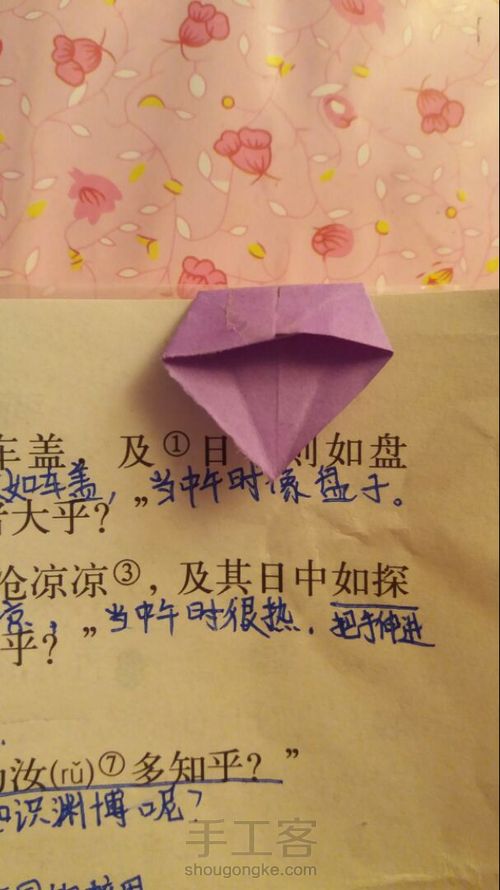 车盖，及①日 则如盘
如车盖，当中午时像盘子。
大乎？”
沧凉凉③，及其日中如探
凉，当中午时很热．把手伸进
乎？”
汝(rǔ)⑦多知乎？”
识渊博呢？
手工客
shougongke.com